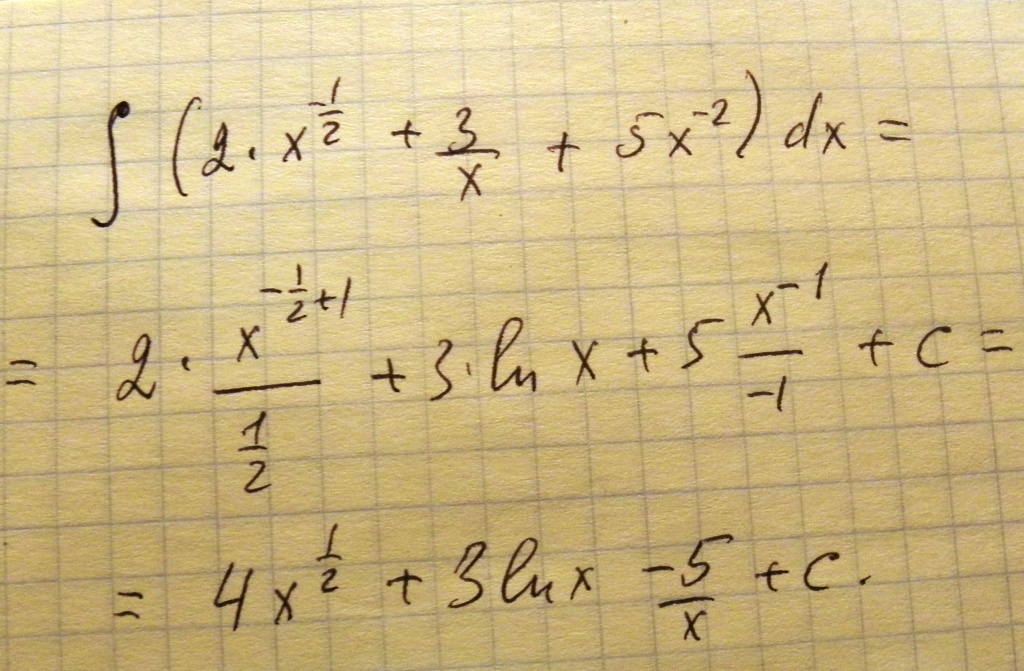 ∫ (2 · x^(-1/2) + 3/x + 5x^(-2)) dx =
= 2 · x^(-1/2+1)/(1/2) + 3 · ln x + 5 x^(-1)/(-1) + c =
= 4x^(1/2) + 3 ln x - 5/x + c.